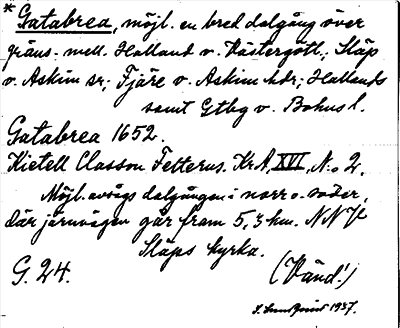 * Gatabrea, möjl. en bred dalgång över
gräns. mell. Halland o. Västergötl., Släp
o. Askim sr; Fjäre o. Askim hdr; Hallands
samt Gtbg o. Bohusl.
Gatabrea 1652.
Kietell Classon Felterus. KrA, XVI, N:o 2.
Möjl. avsågs dalgången i norr o. söder,
där järnvägen går fram 5,3 km. NNV
Släps kyrka.
G. 24.
(Vänd!)
1937.